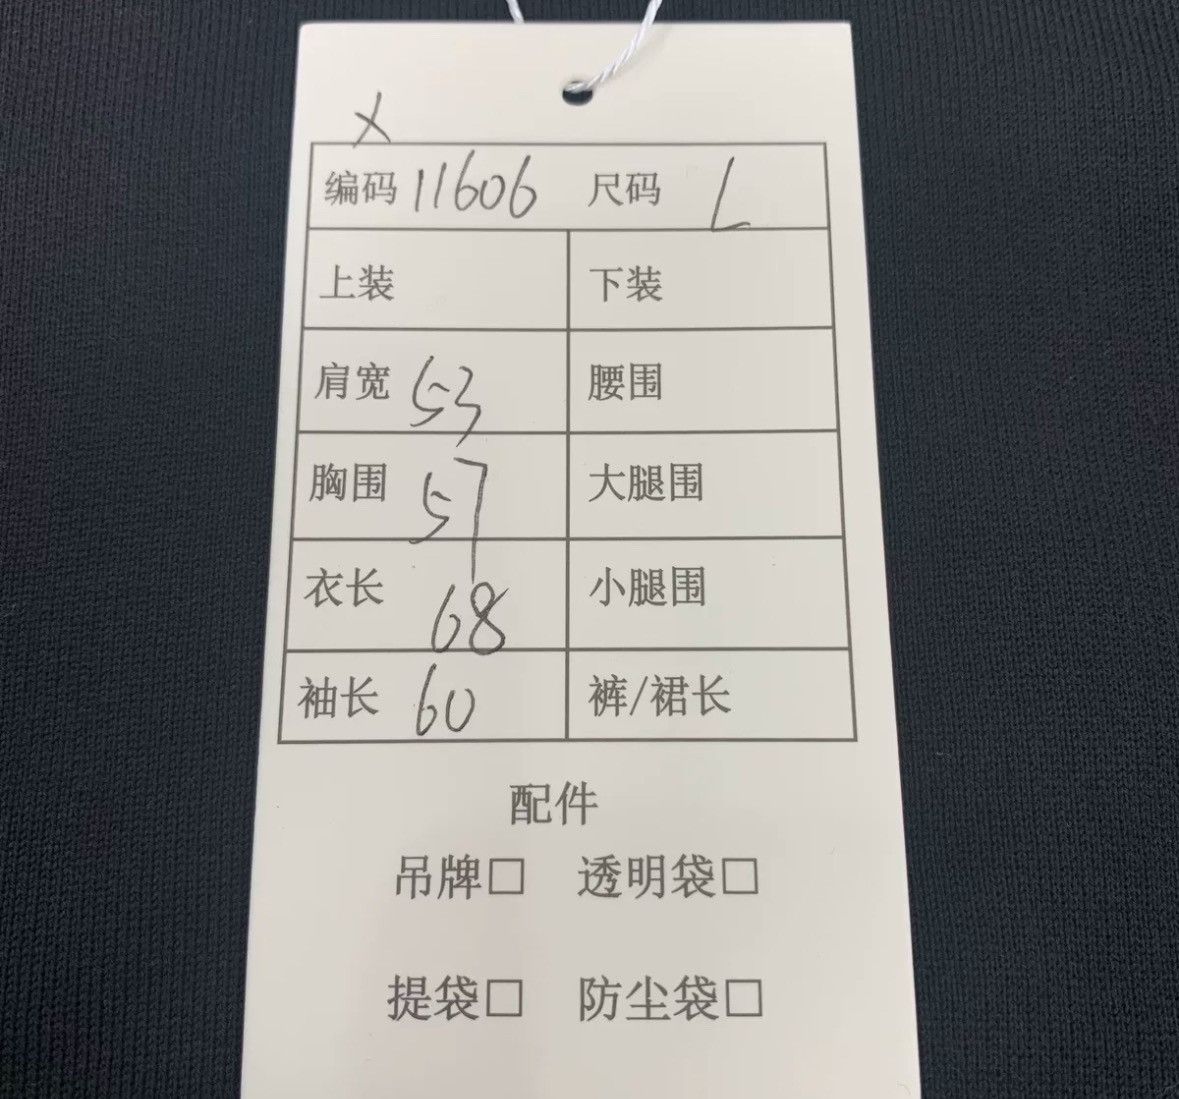 X
编码 11606 尺码 L
上装 下装
肩宽 53 腰围
胸围 57 大腿围
衣长 68 小腿围
袖长 60 裤/裙长
配件
吊牌□ 透明袋□
提袋□ 防尘袋□